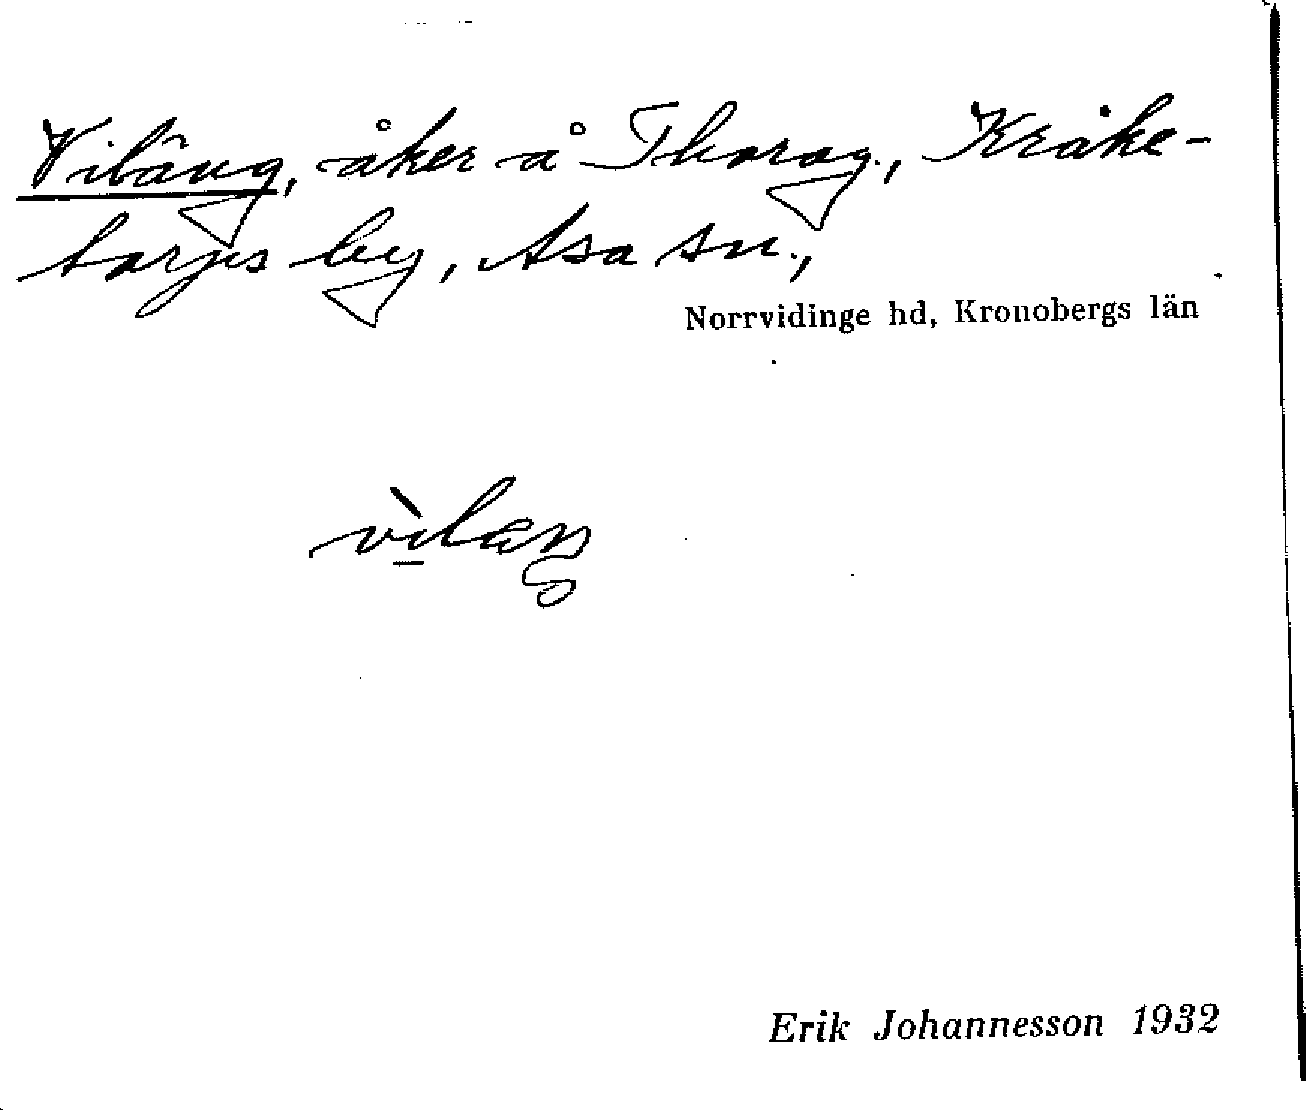 Viläng, åker å Thorsg., Kråke-
torps by, Asa sn.,
Norrvidinge hd, Kronobergs län
vìlæŋ
Erik Johannesson 1932